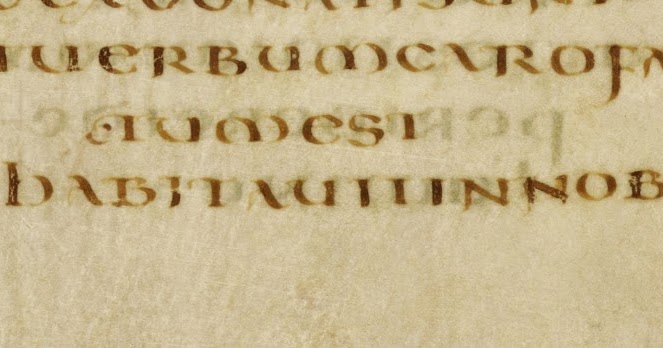 UERBUMCAROFA
TUMEST
HABITAUITINNOB